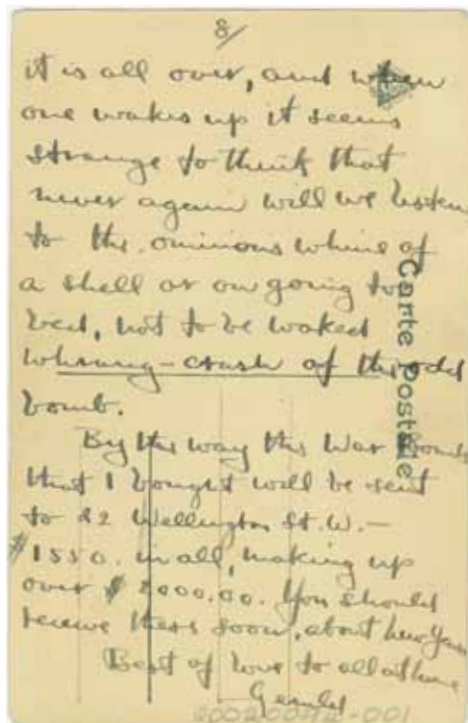 8/
it is all over, and when
one wakes up it seems
strange to think that
never again will we listen
to the ominous whine of
a shell or on going to
bed, not to be waked
whrang-crash of the odd
bomb.
By the way the War Bonds
that I bought will be sent
to 22 Wellington St. W. -
$1550. in all, making up
over $2000.00. You should
receive these soon, about New Years
Best of love to all at home
Gerald
Carte Postale